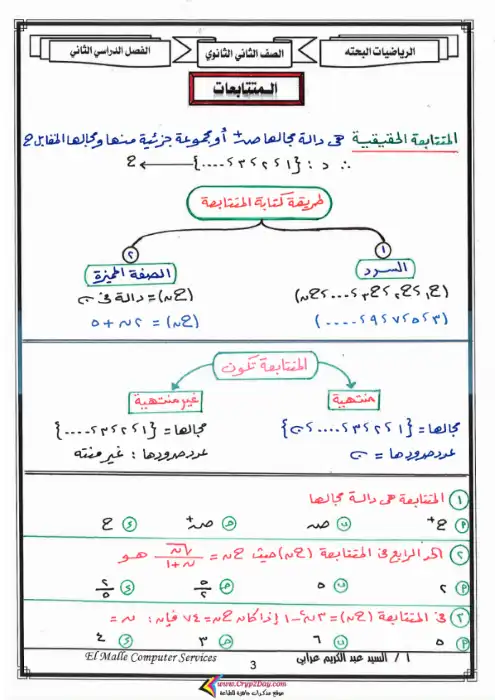 الرياضيات البحته
الصف الثاني الثانوي
الفصل الدراسي الثاني
المتتابعات
المتتابعة الحقيقية هى دالة مجالها صـ+ أو مجموعة جزئية منها ومجالها المقابل ح
∴ د : {١، ٢، ٣، ....} ← ح
طريقة كتابة المتتابعة
١
السرد
(ح١، ح٢، ح٣، ...، حن)
(٣، ٥، ٧، ٩، ....)
٢
الصفة المميزة
(حن) = دالة فى ن
(حن) = ٢ن + ٥
المتتابعة تكون
منتهية
مجالها = {١، ٢، ٣، ....، ن}
عدد حدودها = ن
غير منتهية
مجالها = {١، ٢، ٣، ....}
عدد حدودها : غير منته
١ المتتابعة هى دالة مجالها
أ ح+ ب صـ ج صـ+ د ح
٢ الحد الرابع فى المتتابعة (حن) حيث حن = √ن / ن+١ هو
أ ٢ ب ٥ ج ٥/٢ د ٢/٥
٣ فى المتتابعة (حن) = ٣ن٢ - ١ إذا كان حن = ٧٤ فإن : ن =
أ ٥ ب ٦ ج ٣ د ٤
أ / السيد عبد الكريم عرابى
3
El Malle Computer Services
www.Cryp2Day.com
موقع مذكرات جاهزة للطباعة